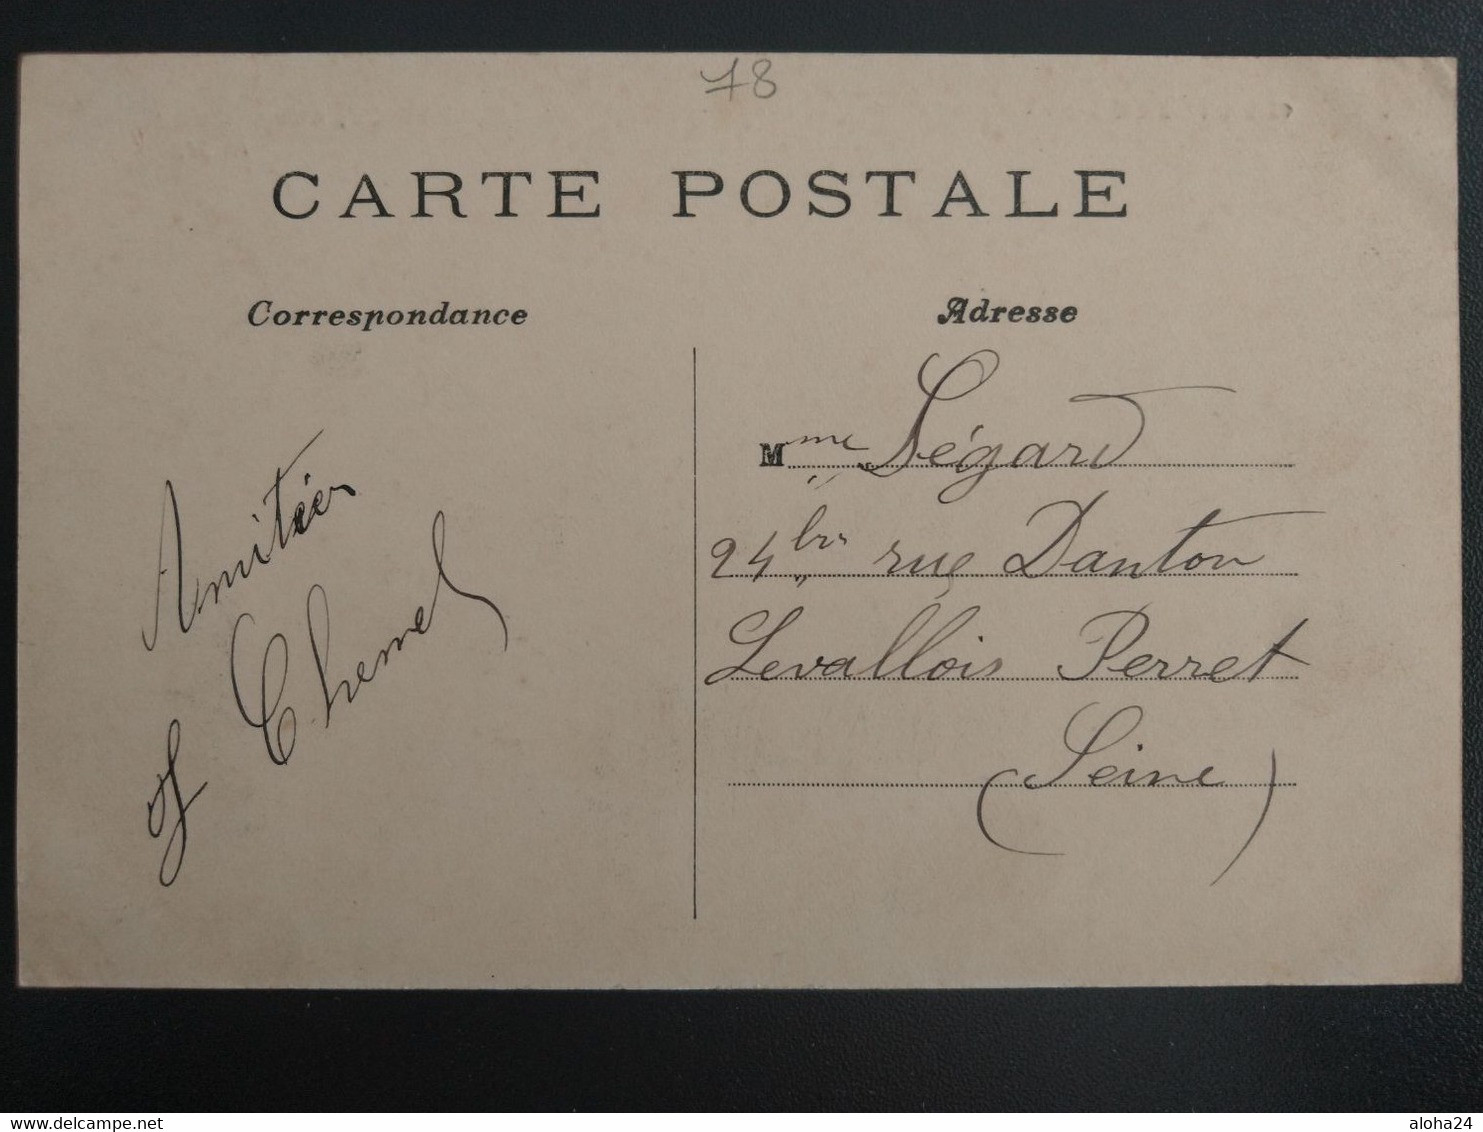 78
CARTE POSTALE
Correspondance
Adresse
Amitiés
Mme Ségard
24 bis rue Danton
Levallois Perret
(Seine)
www.delcampe.net
aloha24